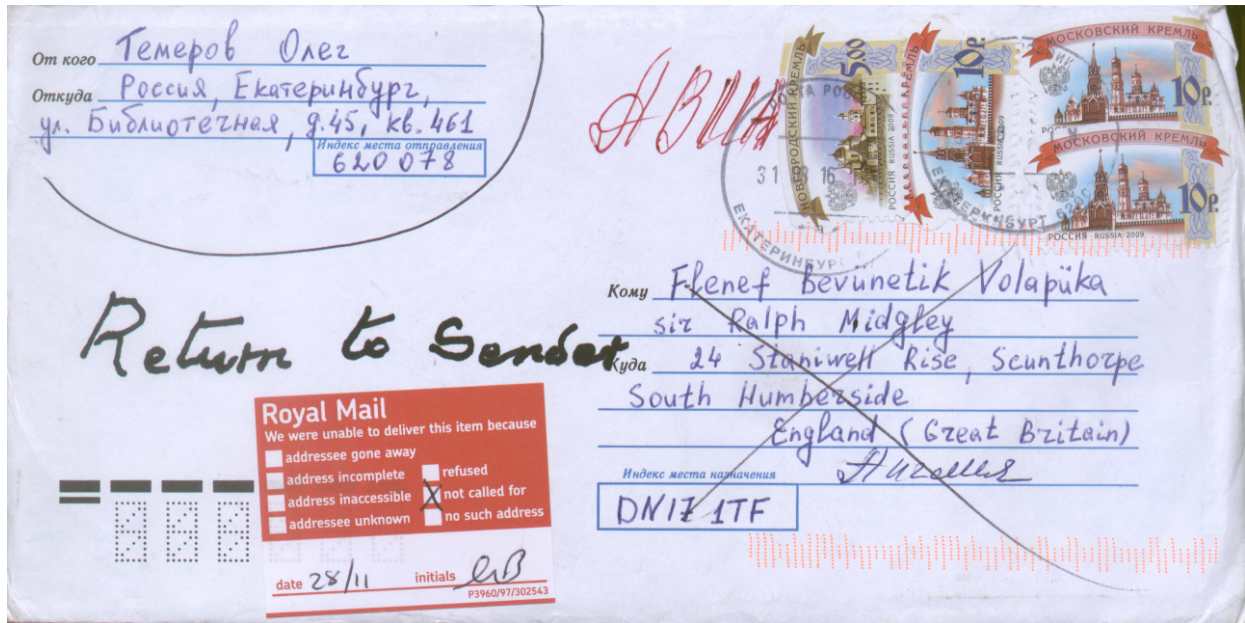 От кого Темеров Олег
Откуда Россия, Екатеринбург,
ул. Библиотечная, д.45, кв. 461
Индекс места отправления
620078
АВИА
НОВГОРОДСКИЙ КРЕМЛЬ
5.00
РОССИЯ RUSSIA 2009
10 Р.
РОССИЯ RUSSIA 2009
МОСКОВСКИЙ КРЕМЛЬ
10 Р.
МОСКОВСКИЙ КРЕМЛЬ
10 Р.
РОССИЯ RUSSIA 2009
31 16
ЕКАТЕРИНБУРГ
ЕКАТЕРИНБУРГ
Return to Sender
Кому Flenef Bevünetik Volapüka
sir Ralph Midgley
Куда 24 Staniwell Rise, Scunthorpe
South Humberside
England (Great Britain)
Англия
Индекс места назначения
DN17 1TF
Royal Mail
We were unable to deliver this item because
addressee gone away
address incomplete
refused
address inaccessible
not called for
addressee unknown
no such address
date 28/11 initials
P3960/97/302543